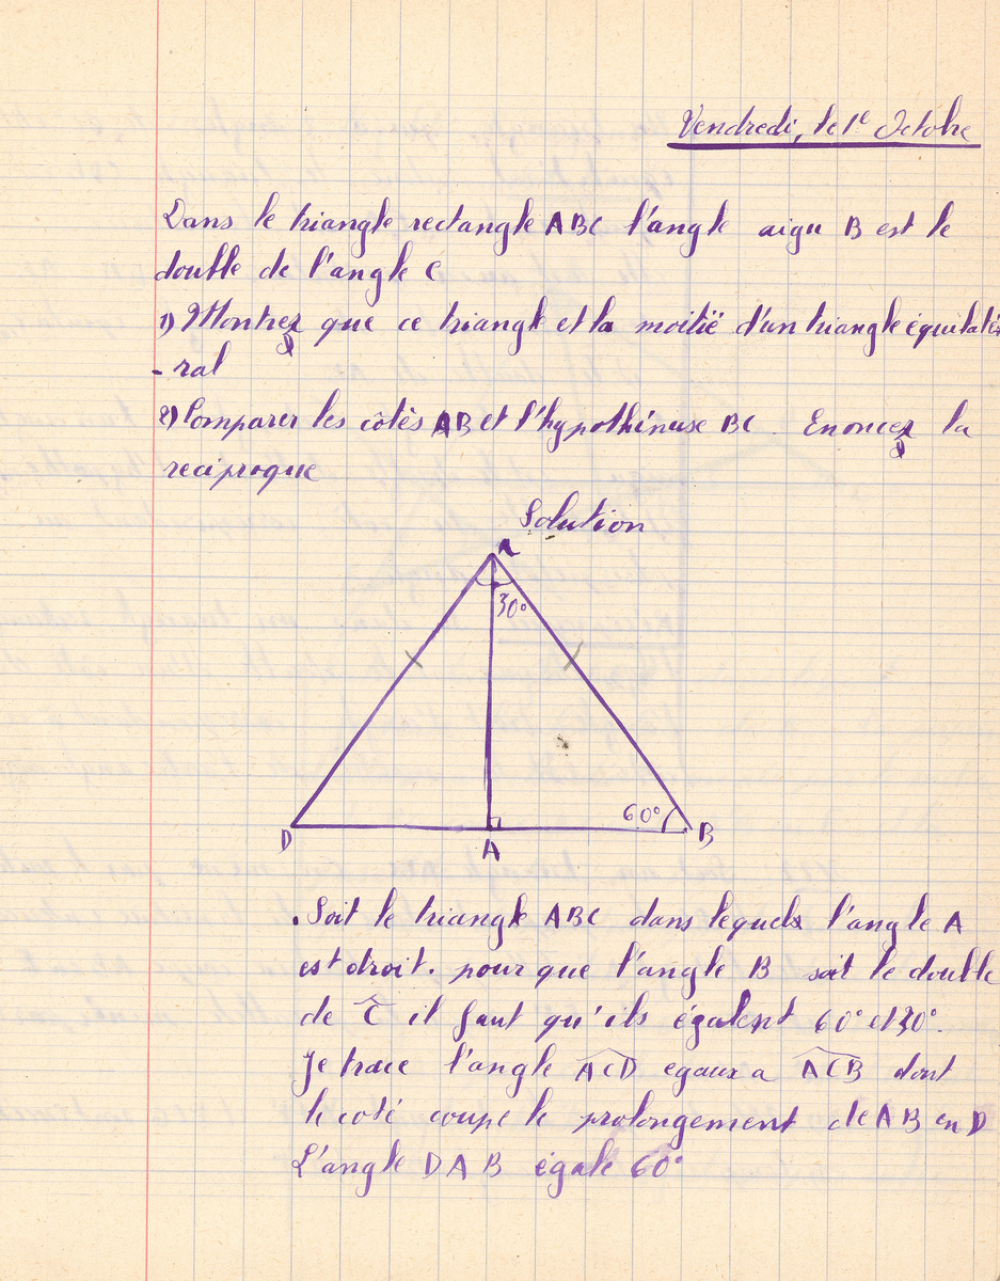 Vendredi, le 1e Octobre
Dans le triangle rectangle ABC l'angle aigu B est le
double de l'angle C
1) Montrez que ce triangle et la moitié d'un triangle équilaté
- ral
2) Comparer les côtés AB et l'hypothénuse BC. Enoncez la
reciproque
Solution
A
30°
60°
D
A
B
. Soit le triangle ABC dans lequels l'angle A
est droit. pour que l'angle B soit le double
de Ĉ il faut qu'ils égalent 60° et 30°.
Je trace l'angle ACD egaux a ACB dont
le coté coupe le prolongement de AB en D
L'angle DAB égale 60°